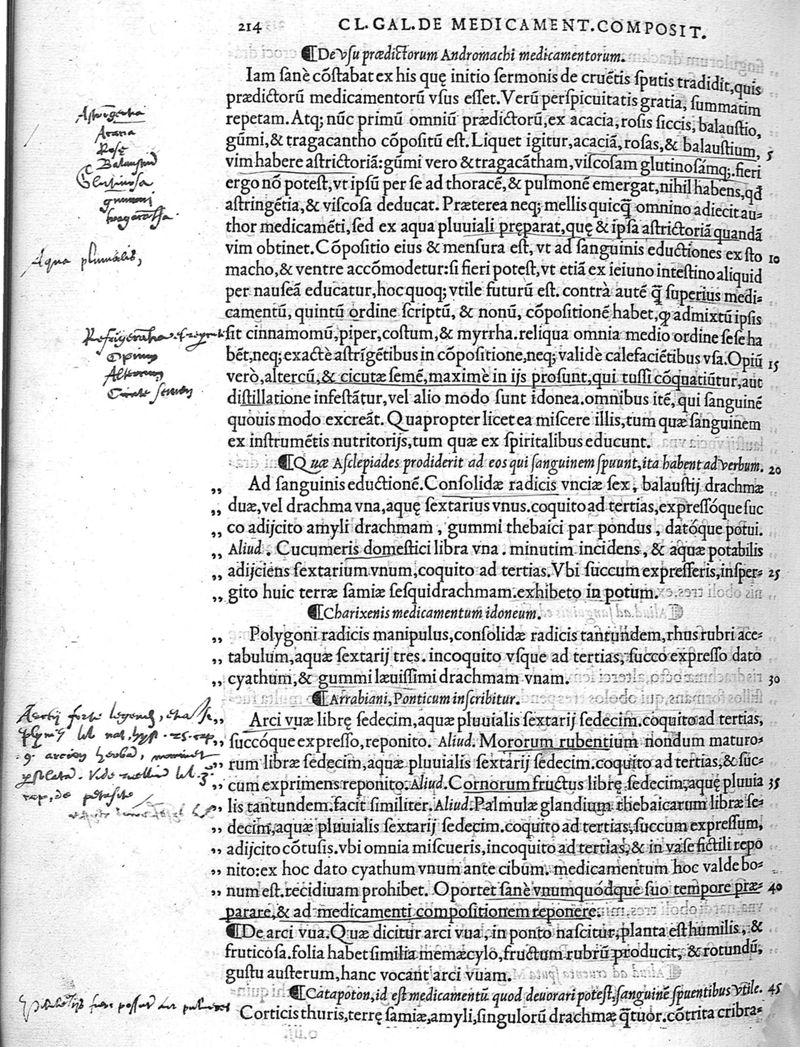 214 CL. GAL. DE MEDICAMENT. COMPOSIT.
De vsu prædictorum Andromachi medicamentorum.
Iam sanè cõstabat ex his quę initio sermonis de cruẽtis sputis tradidit, quis
prædictorũ medicamentorũ vsus esset. Verũ perspicuitatis gratia, summatim
repetam. Atq; nũc primũ omniũ prædictorũ, ex acacia, rosis siccis, balaustio,
gũmi, & tragacantho cõpositũ est. Liquet igitur, acaciã, rosas, & balaustium,
vim habere astrictoriã: gũmi vero & tragacãtham, viscosam glutinosámq;. fieri 5
ergo nõ potest, vt ipsũ per se ad thoracẽ, & pulmonẽ emergat, nihil habens, qđ
astringẽtia, & viscosa deducat. Præterea neq; mellis quicq̃ omnino adiecit au-
thor medicamẽti, sed ex aqua pluuiali pręparat, quę & ipsa astrictoriã quandã
vim obtinet. Cõpositio eius & mensura est, vt ad sanguinis eductiones ex sto 10
macho, & ventre accõmodetur: si fieri potest, vt etiã ex ieiuno intestino aliquid
per nauseã educatur, hoc quoq; vtile futurũ est. contrà autẽ q̃ superius medi-
camentũ, quintũ ordine scriptũ, & nonũ, cõpositionẽ habet, ꝙ admixtũ ipsis
sit cinnamomũ, piper, costum, & myrrha. reliqua omnia medio ordine sese ha
bẽt, neq; exactè astrĩgẽtibus in cõpositione, neq; validè calefaciẽtibus vsa. Opiũ 15
verò, altercũ, & cicutæ semẽ, maximè in ijs prosunt, qui tussi cõquatiũtur, aut
distillatione infestãtur, vel alio modo sunt idonea. omnibus itẽ, qui sanguinẽ
quouis modo excreãt. Quapropter licet ea miscere illis, tum quæ sanguinem
ex instrumẽtis nutritorijs, tum quæ ex spiritalibus educunt.
Quæ Asclepiades prodiderit ad eos qui sanguinem spuunt, ita habent ad verbum. 20
„ Ad sanguinis eductionẽ. Consolidæ radicis vnciæ sex, balaustij drachmæ
„ duæ, vel drachma vna, aquę sextarius vnus. coquito ad tertias, expressóque suc
„ co adijcito amyli drachmam, gummi thebaici par pondus, datóque potui.
„ Aliud. Cucumeris domestici libra vna. minutim incidens, & aquæ potabilis
„ adijciens sextarium vnum, coquito ad tertias. Vbi succum expresseris, insper- 25
„ gito huic terræ samiæ sesquidrachmam. exhibeto in potum.
Charixenis medicamentum idoneum.
„ Polygoni radicis manipulus, consolidæ radicis tantundem, rhus rubri ace-
„ tabulum, aquæ sextarij tres. incoquito vsque ad tertias, succo expresso dato
„ cyathum, & gummi læuissimi drachmam vnam. 30
Arrabiani, Ponticum inscribitur.
„ Arci vuæ librę sedecim, aquæ pluuialis sextarij sedecim. coquito ad tertias,
„ succóque expresso, reponito. Aliud. Mororum rubentium nondum maturo-
„ rum libræ sedecim, aquæ pluuialis sextarij sedecim. coquito ad tertias, & suc-
„ cum exprimens reponito. Aliud. Cornorum fructus librę sedecim, aquę pluuia 35
„ lis tantundem. facit similiter. Aliud. Palmulæ glandium thebaicarum libræ se-
„ decim, aquæ pluuialis sextarij sedecim. coquito ad tertias, succum expressum,
„ adijcito cõtusis. vbi omnia miscueris, incoquito ad tertias, & in vase fictili repo
„ nito: ex hoc dato cyathum vnum ante cibum. medicamentum hoc valde bo-
„ num est. recidiuam prohibet. Oportet sanè vnumquódque suo tempore præ- 40
parare, & ad medicamenti compositionem reponere.
De arci vua. Quæ dicitur arci vua, in ponto nascitur, planta est humilis, &
fruticosa. folia habet similia memæcylo, fructum rubrũ producit, & rotundũ,
gustu austerum, hanc vocant arci vuam.
Catapoton, id est medicamentũ quod deuorari potest, sanguinẽ spuentibus vtile. 45
Corticis thuris, terrę samiæ, amyli, singulorũ drachmæ q̃tuor. cõtrita cribra-
Astringentia
Acatia
Rosę
Balaustiũ
Glutinosa
gummi
Aqua pluuialis,
Opium
Altercum
Cicutæ semen